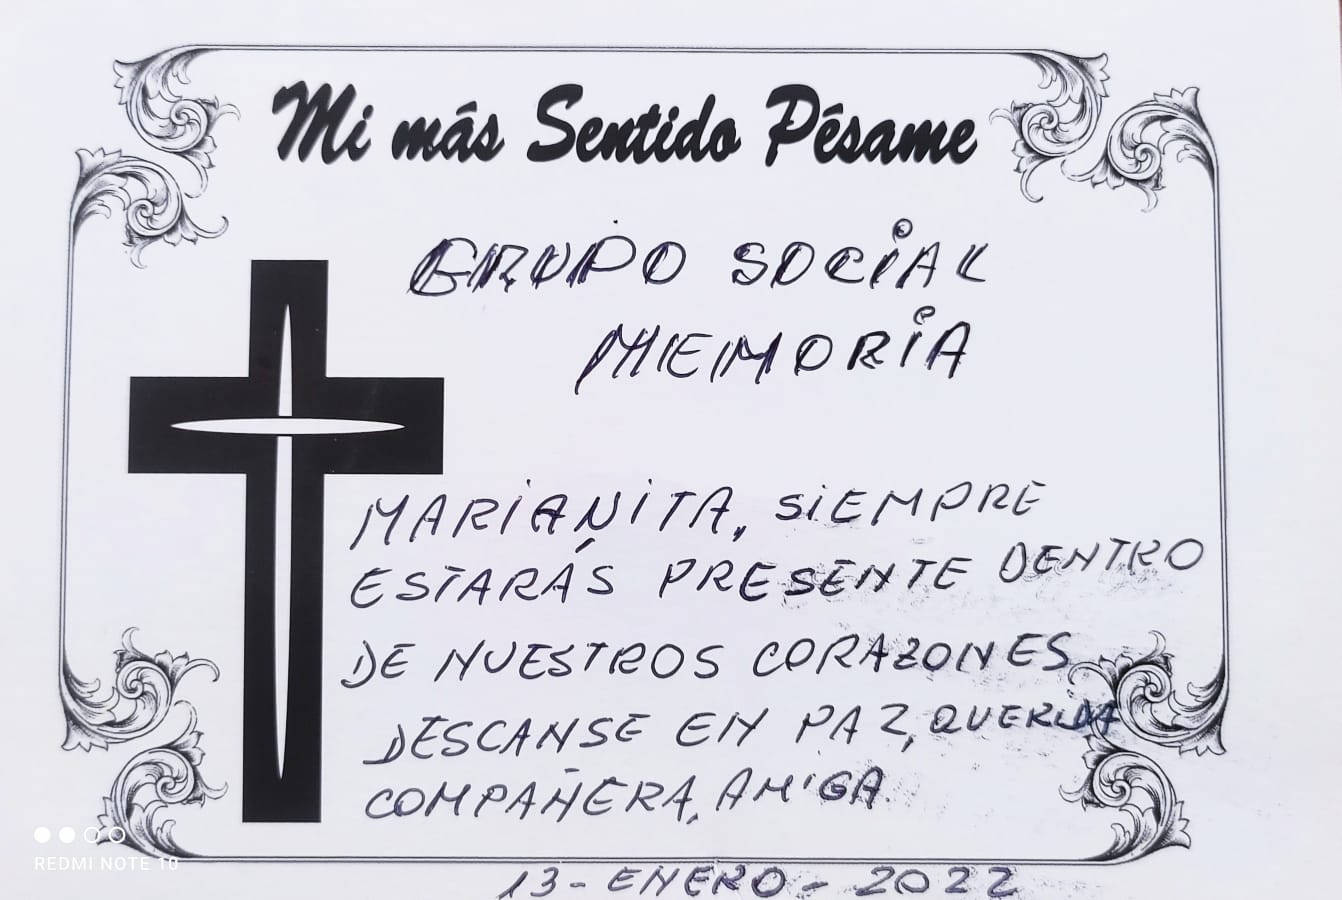 Mi más Sentido Pésame
GRUPO SOCiAL
MEMORiA
MARiANiTA, SiEMPRE
ESTARÁS PRESENTE DENTRO
DE NUESTROS CORAZONES
DESCANSE EN PAZ, QUERiDA
COMPAÑERA, AMiGA
13-ENERO-2022
REDMI NOTE 10